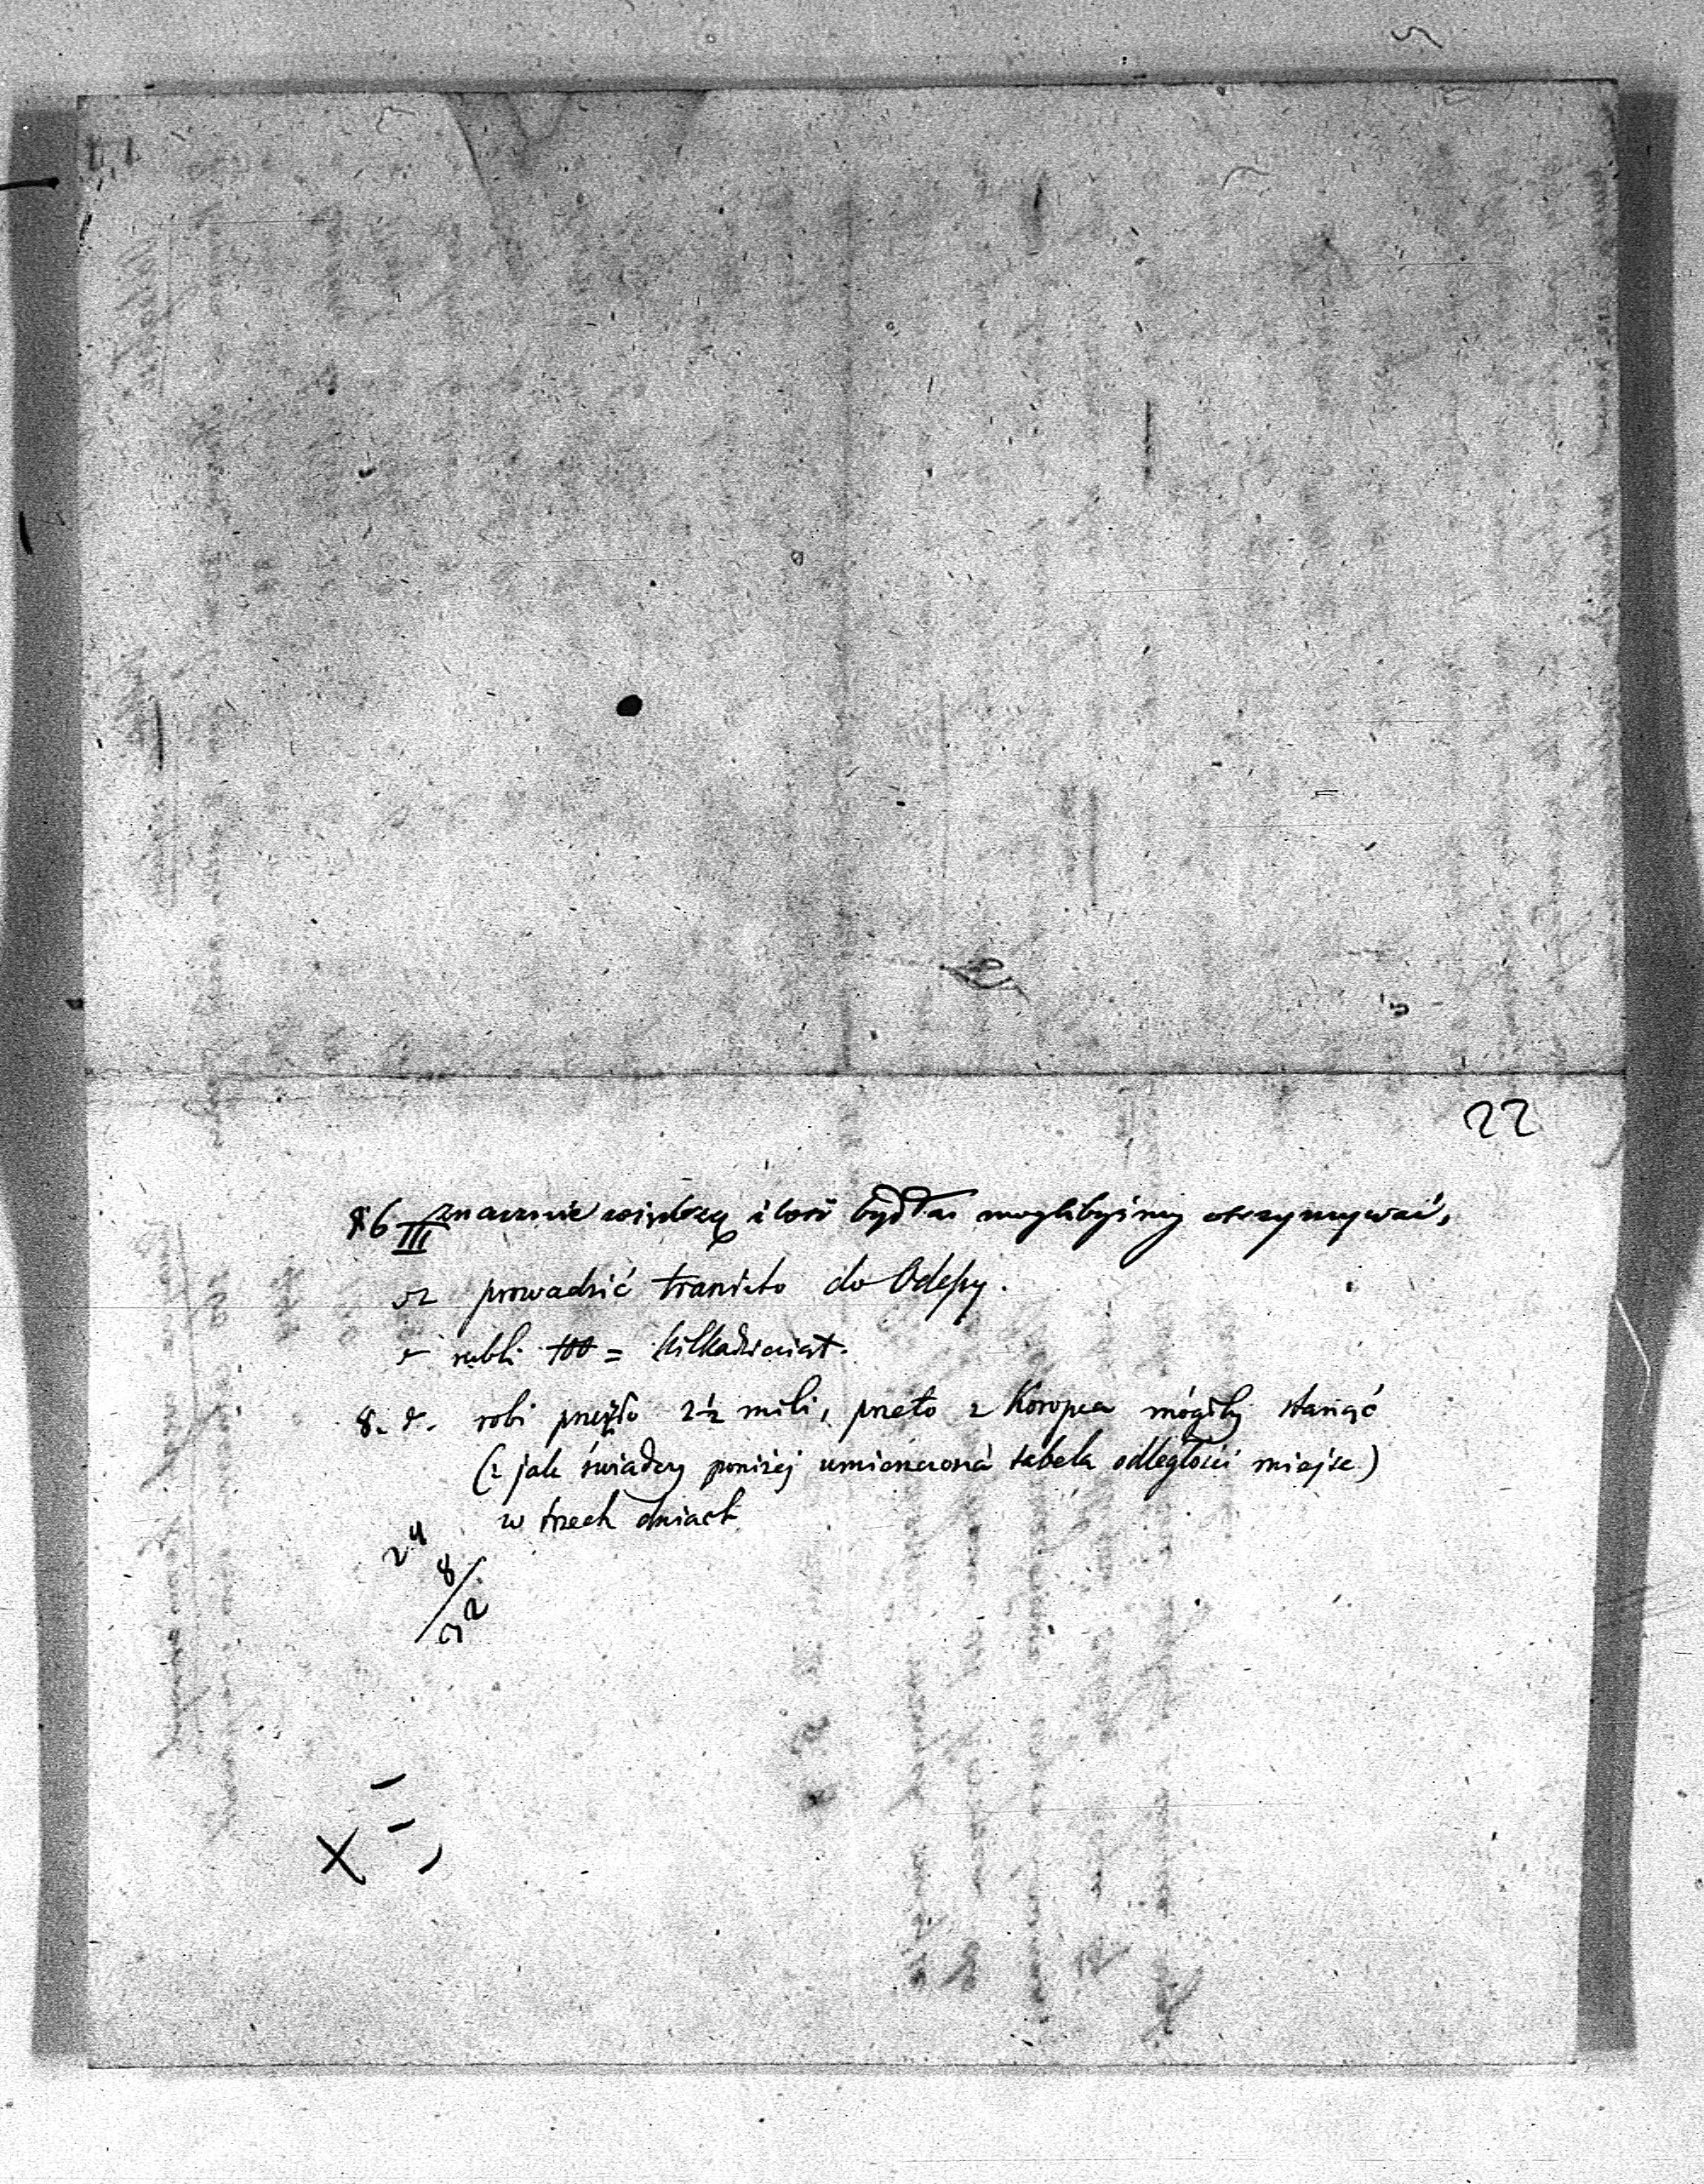 22
§6 III znacznie większą ilość bydła moglibyśmy otrzymywać,
prowadzić tranito do Odessy.
rubli 100 = kilkadziesiąt.
8. robi przeszło 2½ mili, przeto z Koropca mógłby stanąć
(: jak świadczy poniżej umieszczona tabela odległości miejsc)
w trzech dniach
24
8/